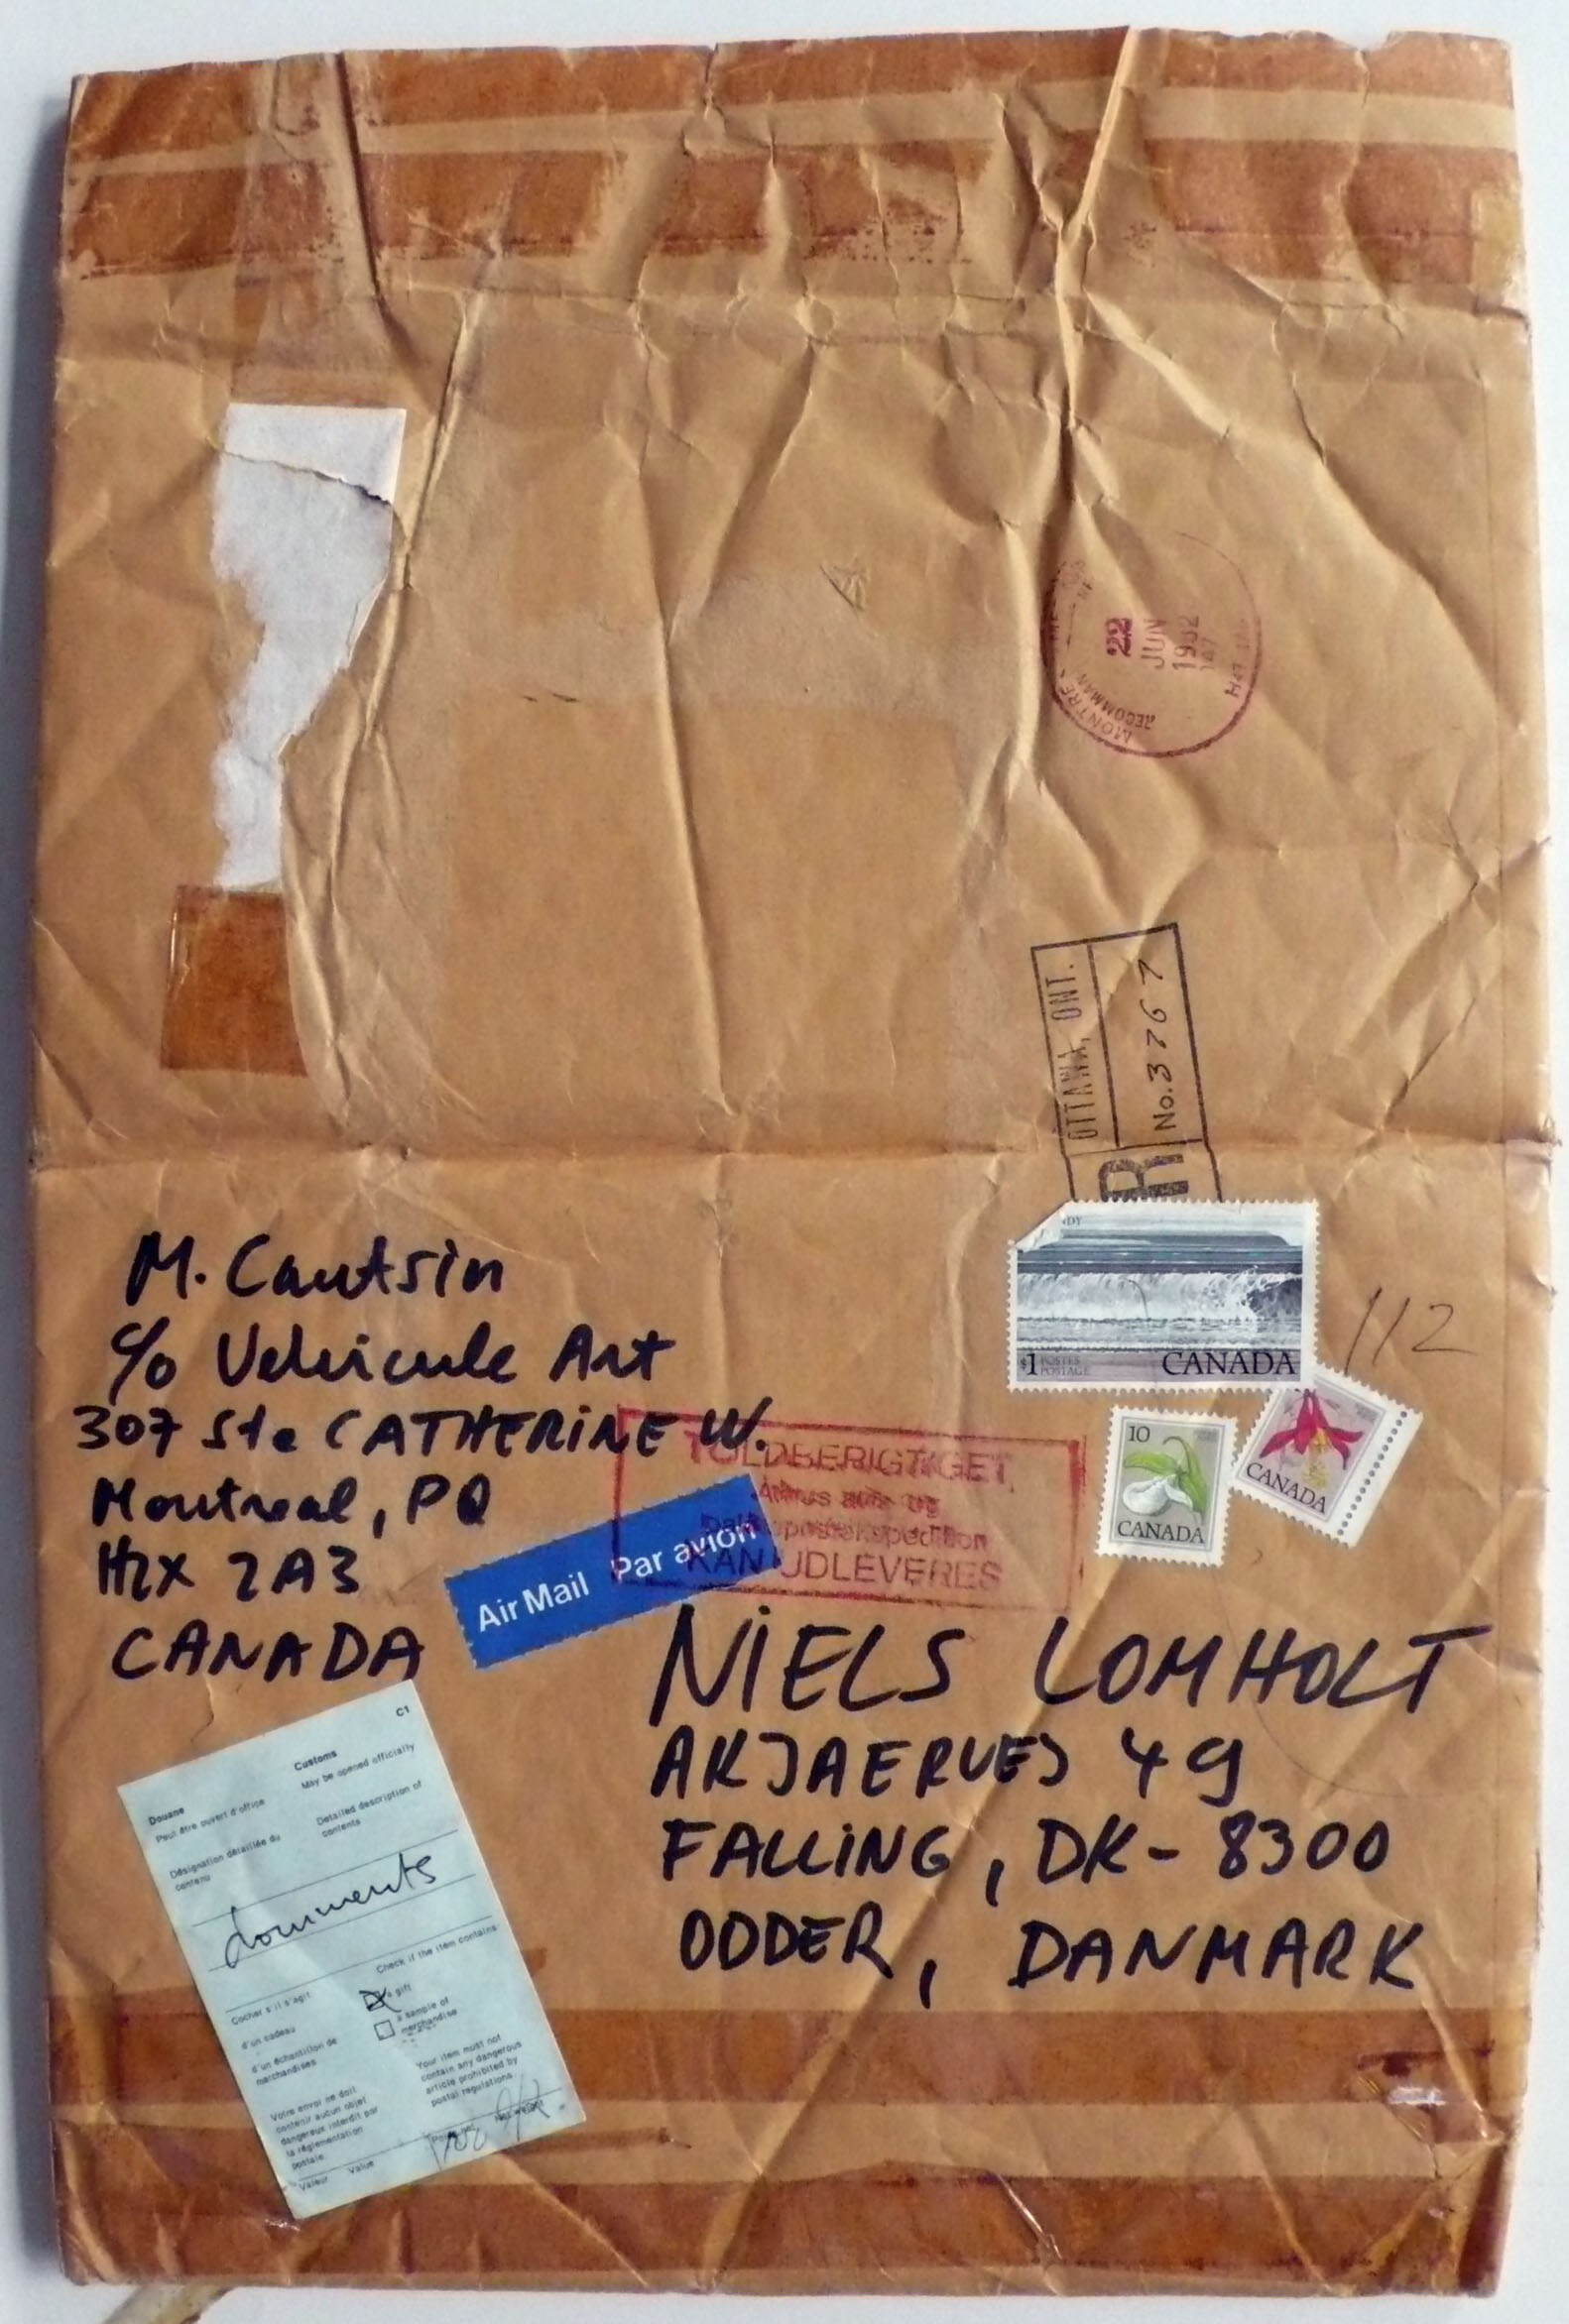 22
JUN
1982
OTTAWA, ONT.
R
No. 3767
$1 POSTES
POSTAGE
CANADA
112
10
CANADA
CANADA
M. Cautsin
c/o Vehicule Art
307 Ste CATHERINE W.
Montreal, PQ
H2X 2A3
CANADA
TOLDBERIGTIGET
KAN UDLEVERES
Air Mail Par avion
NIELS LOMHOLT
AKJAERVEJ 49
FALLING, DK-8300
ODDER, DANMARK
C1
Douane
Peut être ouvert d'office
Customs
May be opened officially
Désignation détaillée du
contenu
Detailed description of
contents
documents
Cocher s'il s'agit
Check if the item contains
d'un cadeau
a gift
d'un échantillon de
marchandises
a sample of
merchandise
Votre envoi ne doit
contenir aucun objet
dangereux interdit par
la réglementation
postale
Your item must not
contain any dangerous
article prohibited by
postal regulations.
Valeur Value